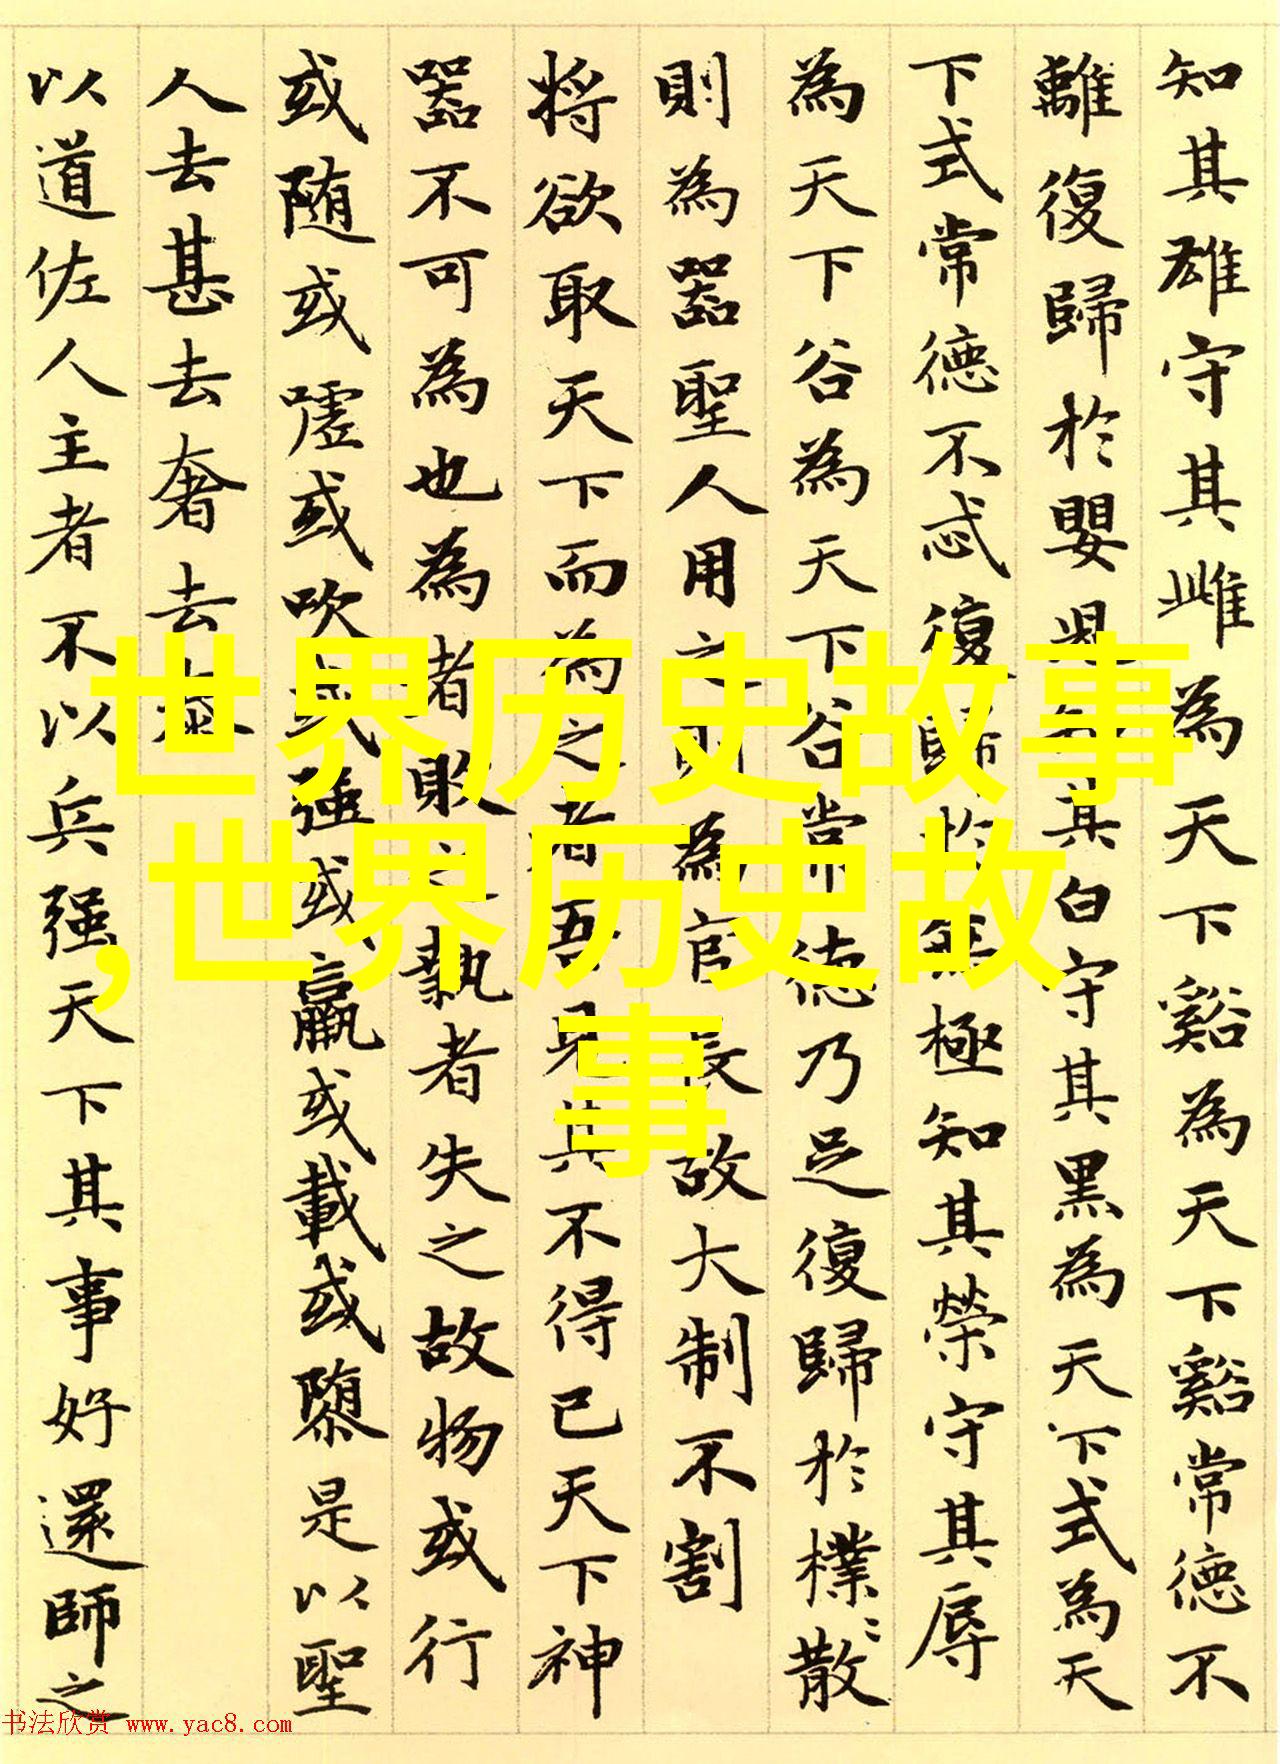 知其雄守其雌為天下谿為天下谿常德不
離復歸於嬰兒知其白守其黑為天下式為天
下式常德不忒復歸於無極知其榮守其辱
為天下谷為天下谷常德乃足復歸於樸〻散
則為器聖人用之則為官長故大制不割
将欲取天下而為之者吾見其不得已天下神
器不可為也為者敗之執者失之故物或行
或随或噓或吹或强或羸或載或隳是以聖
人去甚去奢去泰
以道佐人主者不以兵强天下其事好還師之
世界历史故事
,世界历史故
事
书法欣赏 www.yac8.com